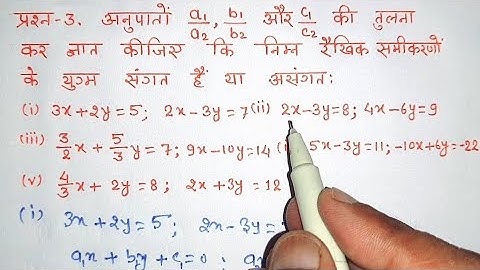 प्रश्न-3. अनुपातों a₁/a₂, b₁/b₂ और c₁/c₂ की तुलना
कर ज्ञात कीजिस कि निम्न रैखिक समीकरणों
के युग्म संगत हैं या असंगत:
(i) 3x+2y=5; 2x-3y=7 (ii) 2x-3y=8; 4x-6y=9
(iii) 3/2x+5/3y=7; 9x-10y=14 5x-3y=11; -10x+6y=-22
(v) 4/3x+2y=8; 2x+3y=12
(i) 3x+2y=5 2x-3y=
a₁x+b₁y+c₁=0